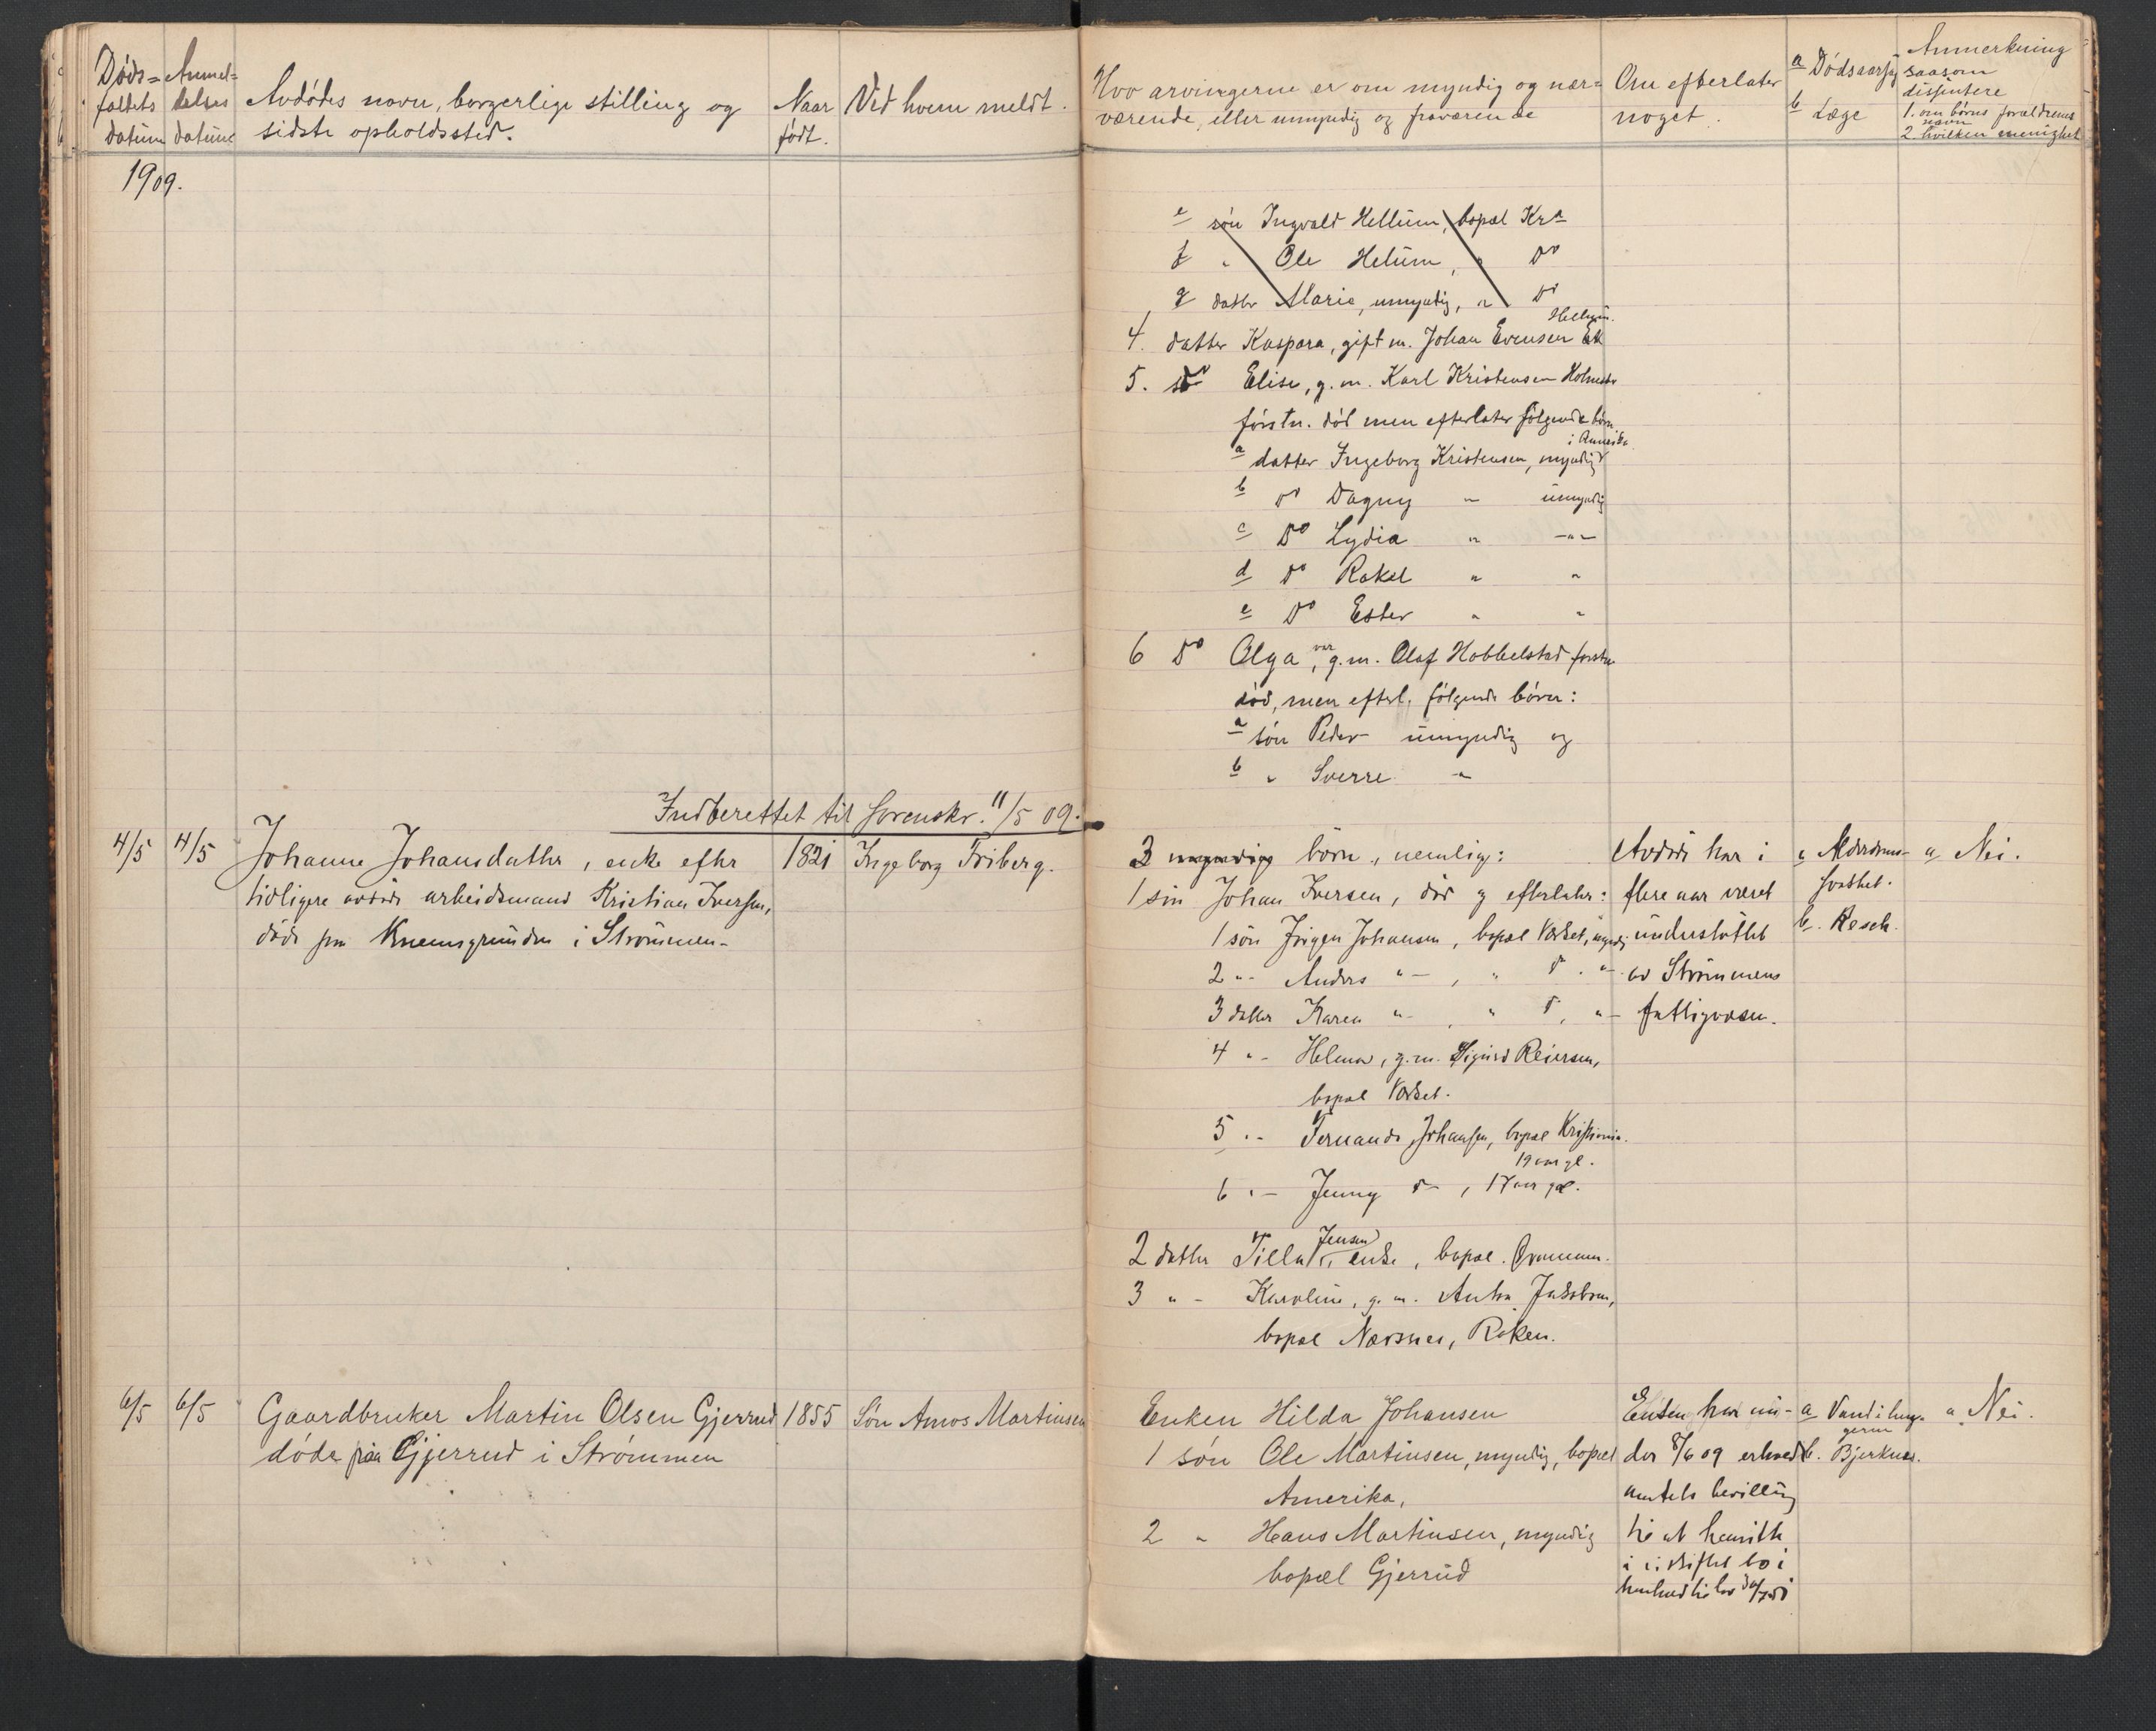 Døds= Anmel=
faldets delses Avdødes navn, borgerlige stilling og Naar Ved hvem meldt.
datum datum sidste opholdssted. født.
1909.
Indberettet til Sorenskr. 11/5 09.
4/5 4/5 Johanne Johansdatter, enke efter 1821 Ingeborg Friberg.
tidligere avdøde arbeidsmand Kristian Iversen,
døde paa i Strømmen.
6/5 6/5 Gaardbruker Martin Olsen Gjerrud 1855 Søn Amos Martinsen
døde paa Gjerrud i Strømmen
Hvo arvingerne er om myndig og nær= Om efterlater a Dødsaarsag Anmerkning
værende, eller umyndig og fraværende noget. b Læge saasom
dissentere
1. om børns forældrenes
navn
2. hvilken menighet
e søn Ingvald Hellum, bopæl Kra
f " Ole Helum, " Do
g datter Marie, umyndig, " Do
Hellum.
4. datter Kaspara, gift m. Johan Evensen Ek
5. do Elise, g. m. Karl Kristensen
førstn. død men efterlater følgende børn
i Amerika
a datter Ingeborg Kristensen, myndig
b do Dagny " umyndig
c Do Lydia " -"-
d Do Rakel " "
e Do Ester " "
6 Do Olga, var g. m. Olaf Hobbelstad førstn.
død, men efterl. følgende børn:
a søn Peder umyndig og
b " Sverre "
3 børn, nemlig: Avdøde har i a Alderdoms- a Nei.
1 søn Johan Iversen, død og efterlater: flere aar været svakhet.
1 søn Jørgen Johansen, bopæl Verket, myndig understøttet b. Resch.
2 "- Anders "-, " do. "- av Strømmens
3 datter Karen "-, " do, "- fattigvæsen.
4 "- Helma, g. m. Sigurd Reiersen,
bopæl Verket.
5 "- Fernanda Johansen, bopæl Kristiania.
19 aar gl.
6 "- Jenny do, 17 aar gl.
2 datter Tilla Jensen, enke, bopæl Drammen.
3 "- Karoline, g. m. Anton Jakobsen,
bopæl Nærsnes, Røken.
Enken Hilda Johansen Enken har un- a Vand i lun- a. Nei.
gerne
1 søn Ole Martinsen, myndig, bopæl der 8/6 09 erhvedt b. Bjerknes.
Amerika, amtets bevilling
2 " Hans Martinsen, myndig til at hensitte
bopæl Gjerrud i uskiftet bo i
henhold til lov